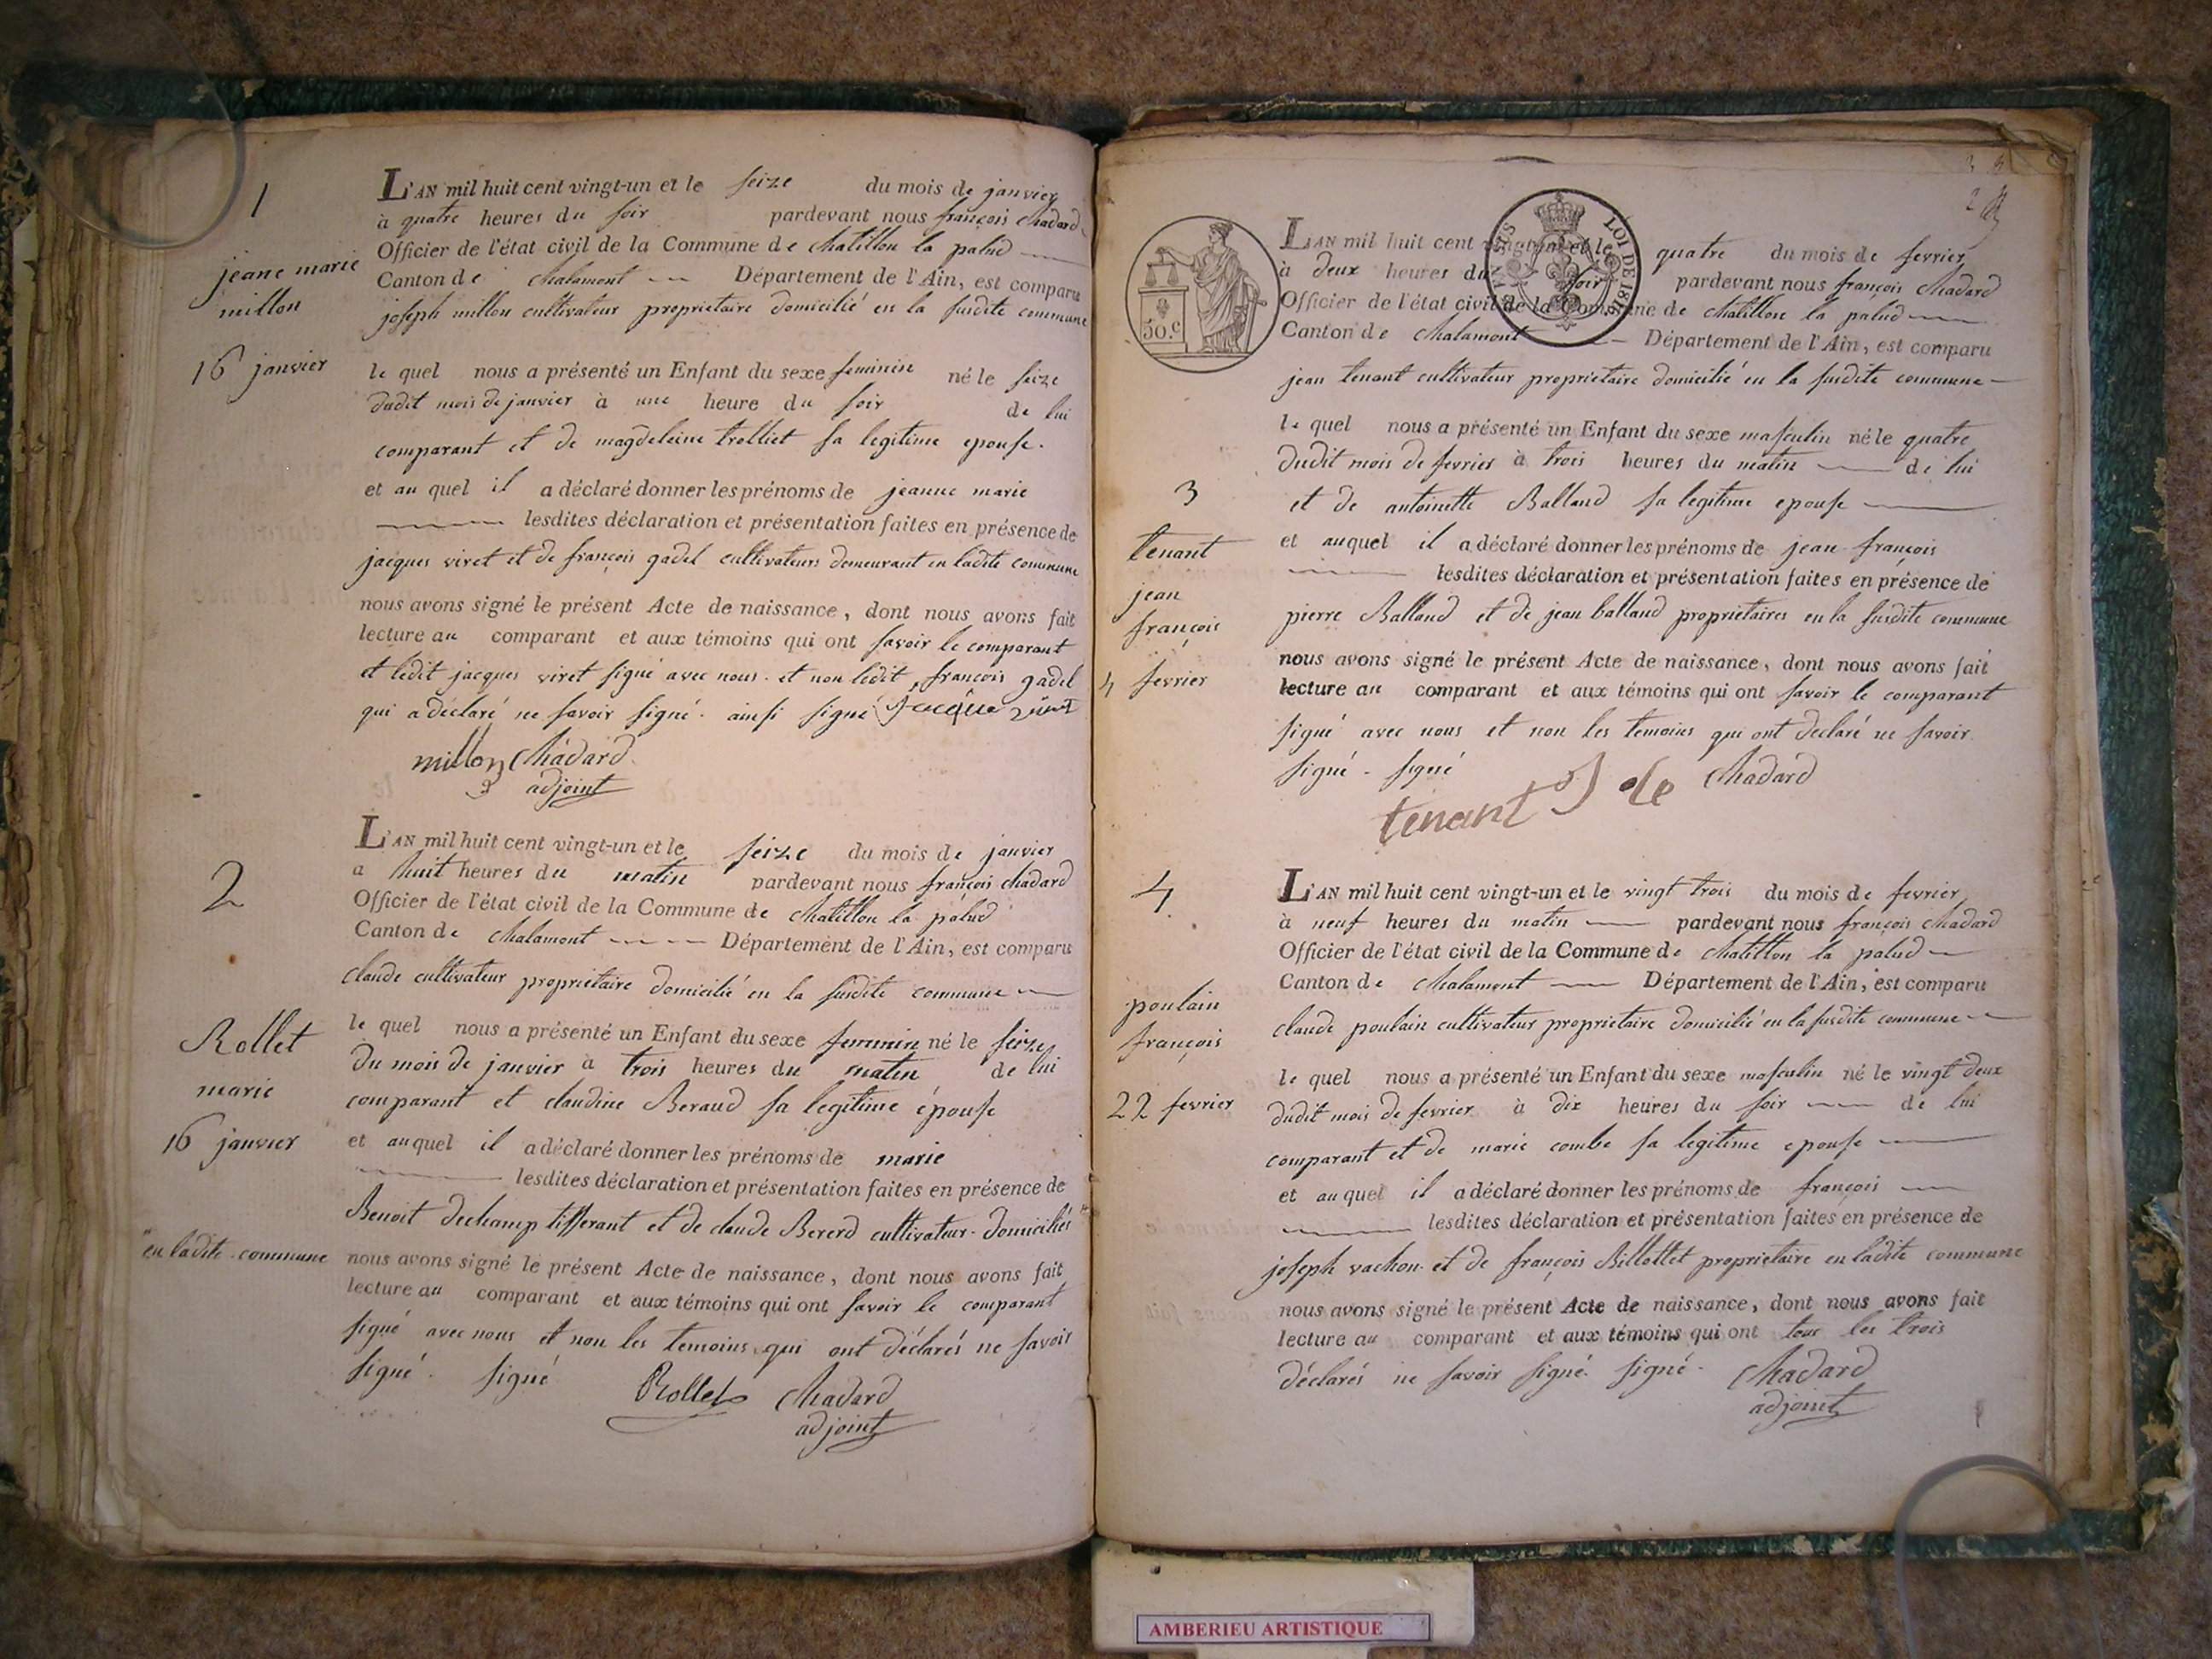 1
jeane marie
millon
16 janvier
L'AN mil huit cent vingt-un et le seize du mois de janvier
à quatre heures du soir pardevant nous françois Chadard
Officier de l'état civil de la Commune de Chatillon la palud
Canton de Chalamont Département de l'Ain, est comparu
joseph millon cultivateur proprietaire domicilié en la susdite commune
le quel nous a présenté un Enfant du sexe feminin né le seize
dudit mois de janvier à une heure du soir de lui
comparant et de magdeleine trolliet sa legitime epouse.
et au quel il a déclaré donner les prénoms de jeanne marie
lesdites déclaration et présentation faites en présence de
jacques viret et de françois gadel cultivateurs demeurant en ladite commune
nous avons signé le présent Acte de naissance, dont nous avons fait
lecture au comparant et aux témoins qui ont savoir le comparant
et ledit jacques viret signé avec nous. et non ledit françois gadel
qui a déclaré ne savoir signé. ainsi signé Jacque viret
millon Chadard
adjoint
2
Rollet
marie
16 janvier
en ladite commune
L'AN mil huit cent vingt-un et le seize du mois de janvier
a huit heures du matin pardevant nous françois chadard
Officier de l'état civil de la Commune de Chatillon la palud
Canton de Chalamont Département de l'Ain, est comparu
claude cultivateur proprietaire domicilié en la susdite commune
le quel nous a présenté un Enfant du sexe feminin né le seize
du mois de janvier à trois heures du matin de lui
comparant et claudine Beraud sa legitime épouse
et au quel il a déclaré donner les prénoms de marie
lesdites déclaration et présentation faites en présence de
Benoit dechamp tisserant et de claude Bererd cultivateur domiciliés
nous avons signé le présent Acte de naissance, dont nous avons fait
lecture au comparant et aux témoins qui ont savoir le comparant
signé avec nous et non les temoins qui ont déclarés ne savoir
signé. signé Rollet Chadard
adjoint
2
50.c
LOI DE 1816
3
tenant
jean
françois
4 fevrier
L'AN mil huit cent vingt-un et le quatre du mois de fevrier
à deux heures du soir pardevant nous françois Chadard
Officier de l'état civil de la Commune de Chatillon la palud
Canton de Chalamont Département de l'Ain, est comparu
jean tenant cultivateur proprietaire domicilié en la susdite commune
le quel nous a présenté un Enfant du sexe masculin né le quatre
dudit mois de fevrier à trois heures du matin de lui
et de antoinette Balland sa legitime epouse
et auquel il a déclaré donner les prénoms de jean françois
lesdites déclaration et présentation faites en présence de
pierre Balland et de jean balland proprietaires en la susdite commune
nous avons signé le présent Acte de naissance, dont nous avons fait
lecture au comparant et aux témoins qui ont savoir le comparant
signé avec nous et non les temoins qui ont declaré ne savoir
signé. signé
tenant Chadard
4
poulain
françois
22 fevrier
L'AN mil huit cent vingt-un et le vingt trois du mois de fevrier
à neuf heures du matin pardevant nous françois Chadard
Officier de l'état civil de la Commune de Chatillon la palud
Canton de Chalamont Département de l'Ain, est comparu
claude poulain cultivateur proprietaire domicilié en la susdite commune
le quel nous a présenté un Enfant du sexe masculin né le vingt deux
dudit mois de fevrier à dix heures du soir de lui
comparant et de marie combe sa legitime epouse
et au quel il a déclaré donner les prénoms de françois
lesdites déclaration et présentation faites en présence de
joseph vachon et de françois Billottet proprietaire en ladite commune
nous avons signé le présent Acte de naissance, dont nous avons fait
lecture au comparant et aux témoins qui ont tous les trois
déclarés ne savoir signé. signé. Chadard
adjoint
AMBERIEU ARTISTIQUE